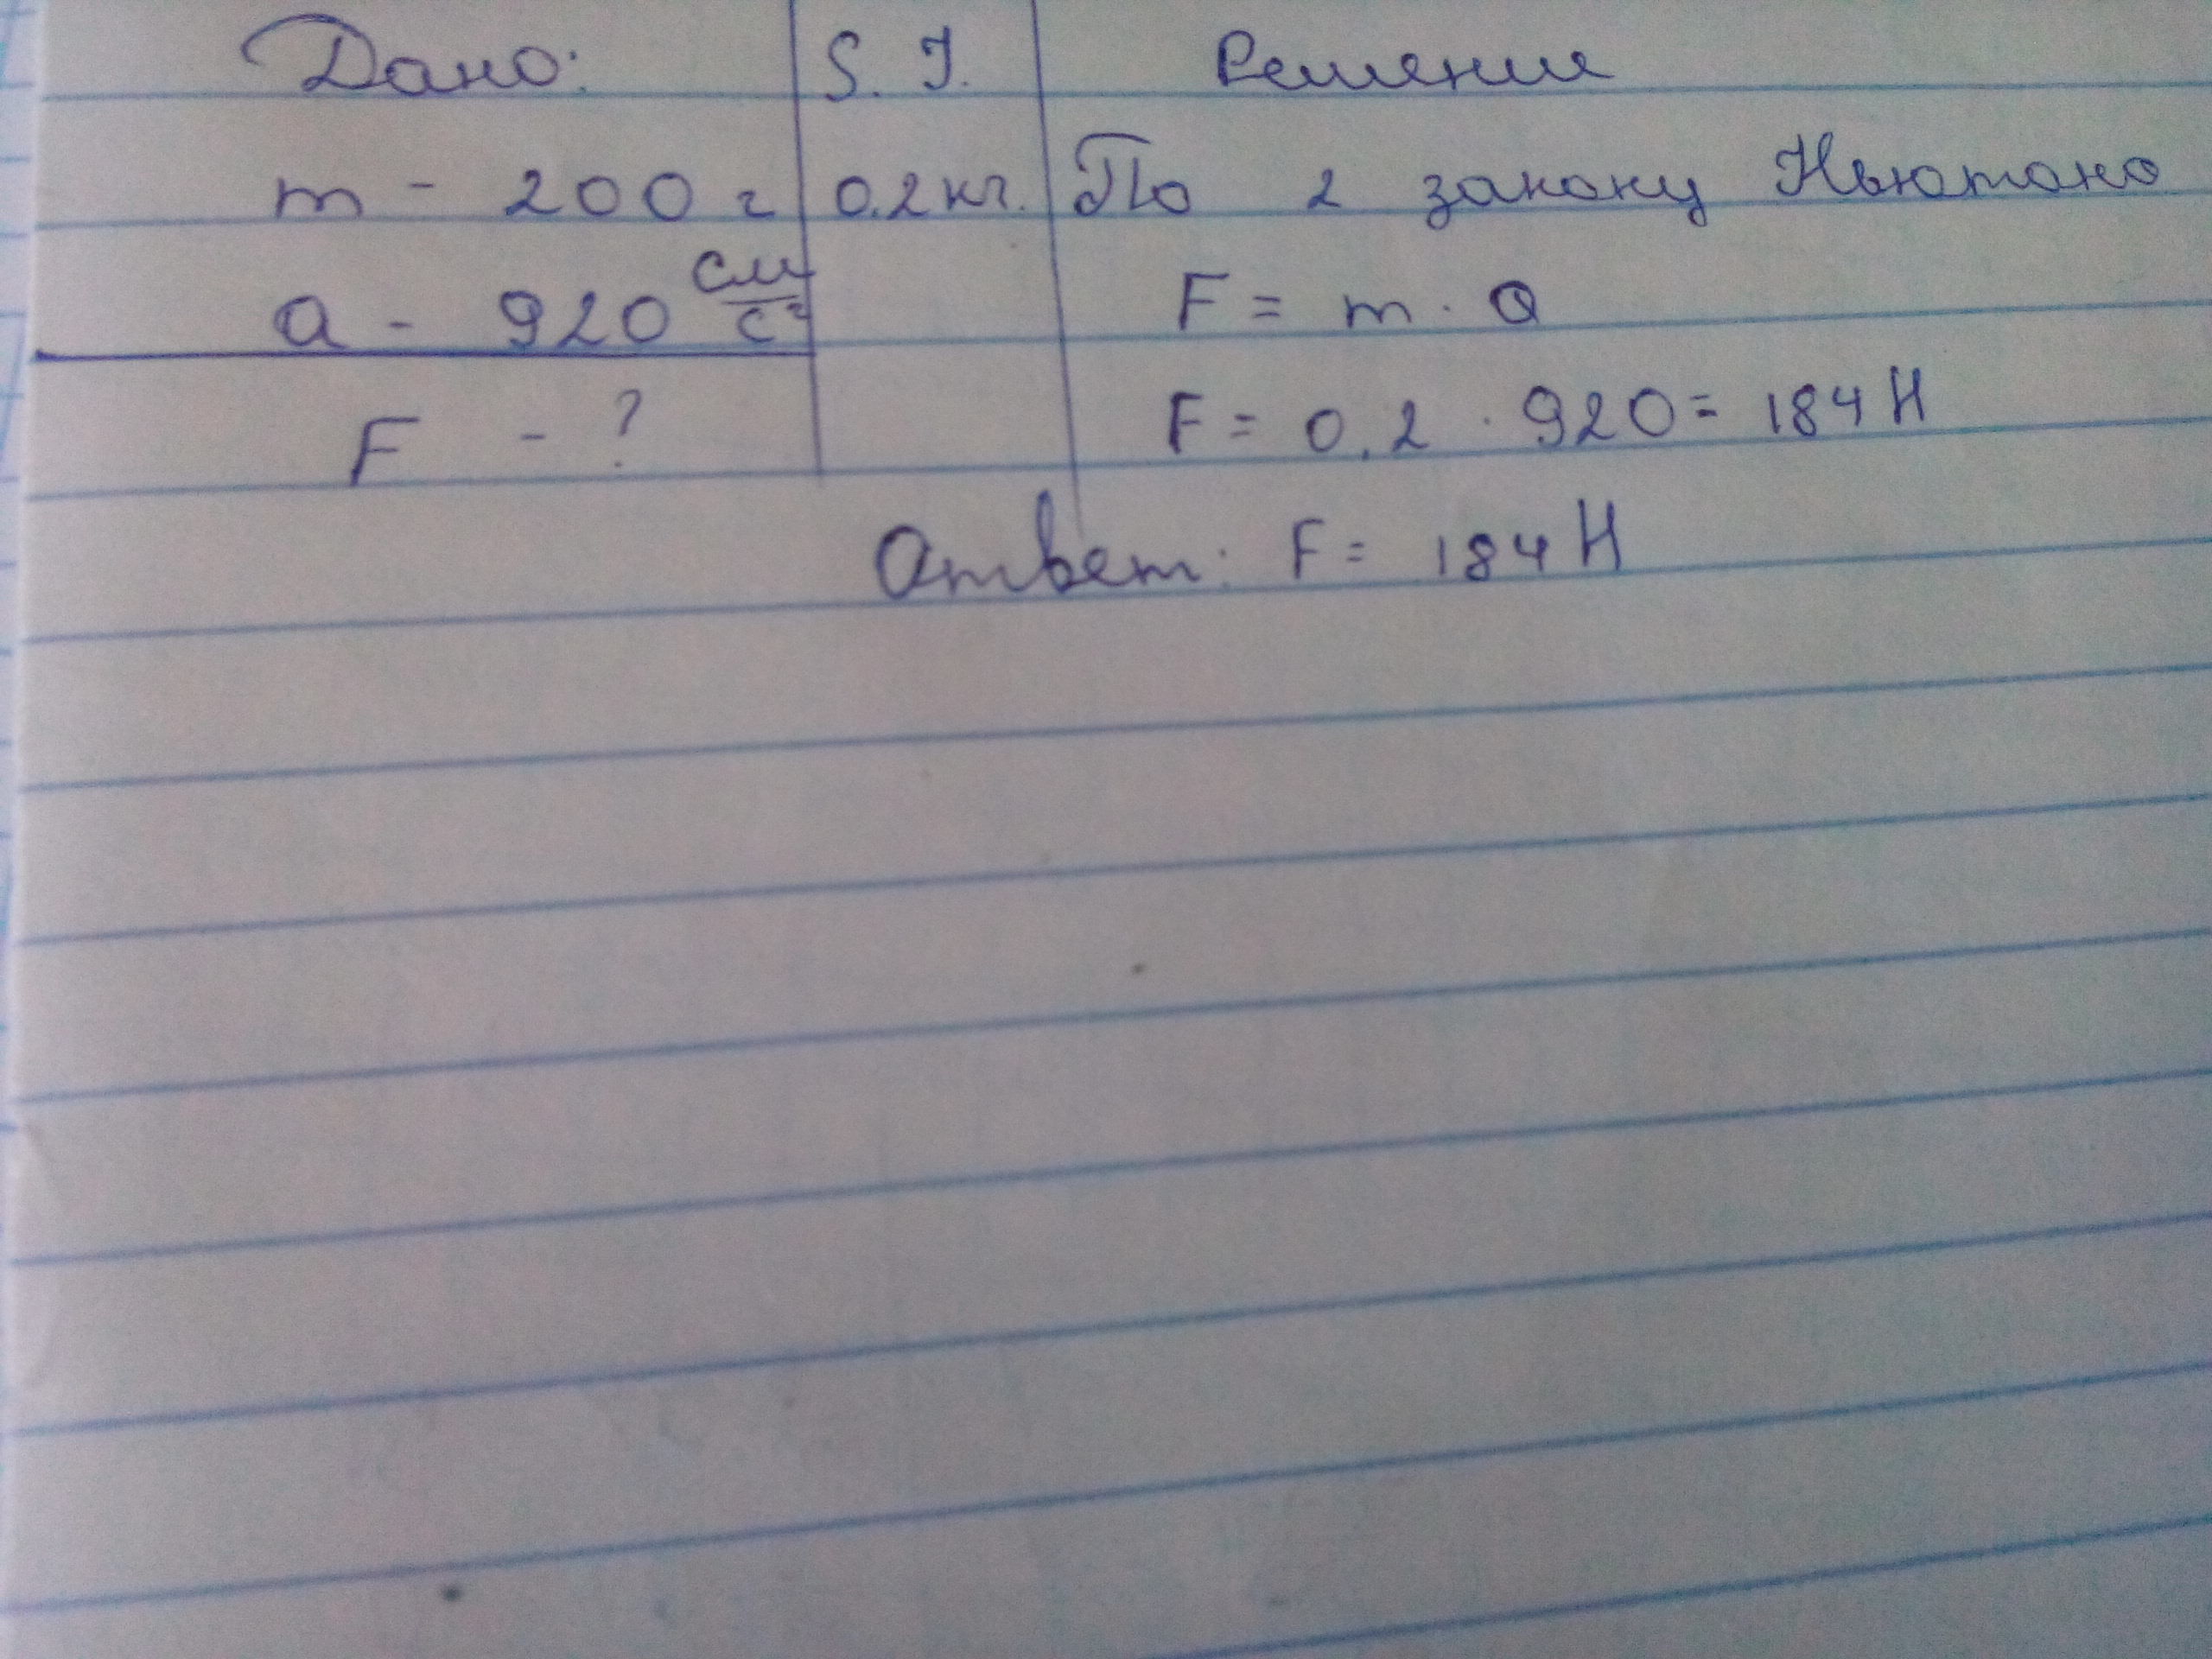 Дано: S. I. Решение
m - 200 г 0.2 кг. По 2 закону Ньютона
a - 920 см/с² F = m · a
F - ? F = 0.2 · 920 = 184 Н
Ответ: F = 184 Н